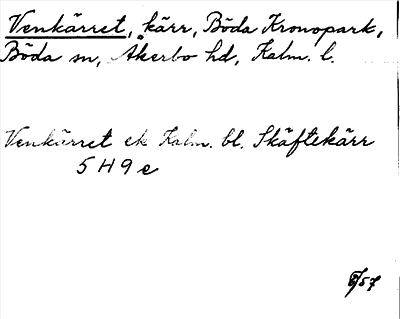 Venkärret, kärr, Böda Kronopark,
Böda sn, Åkerbo hd, Kalm. l.
Venkärret ek Kalm. bl. Skäftekärr
5 H 9 e